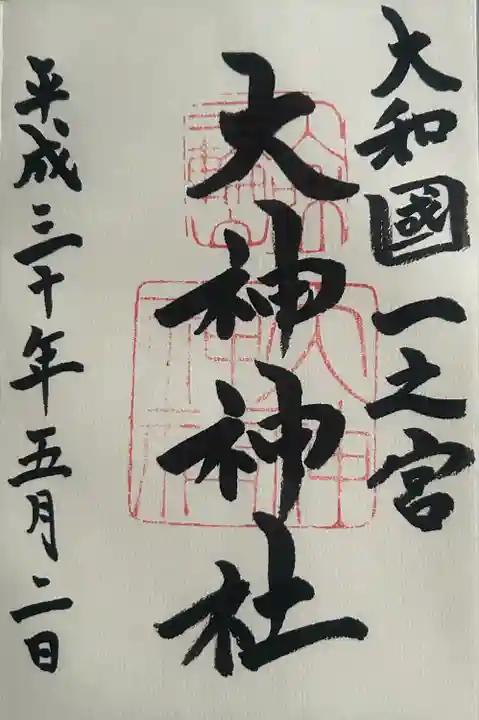 大和國一之宮
大神神社
平成三十年五月二日
大神神社